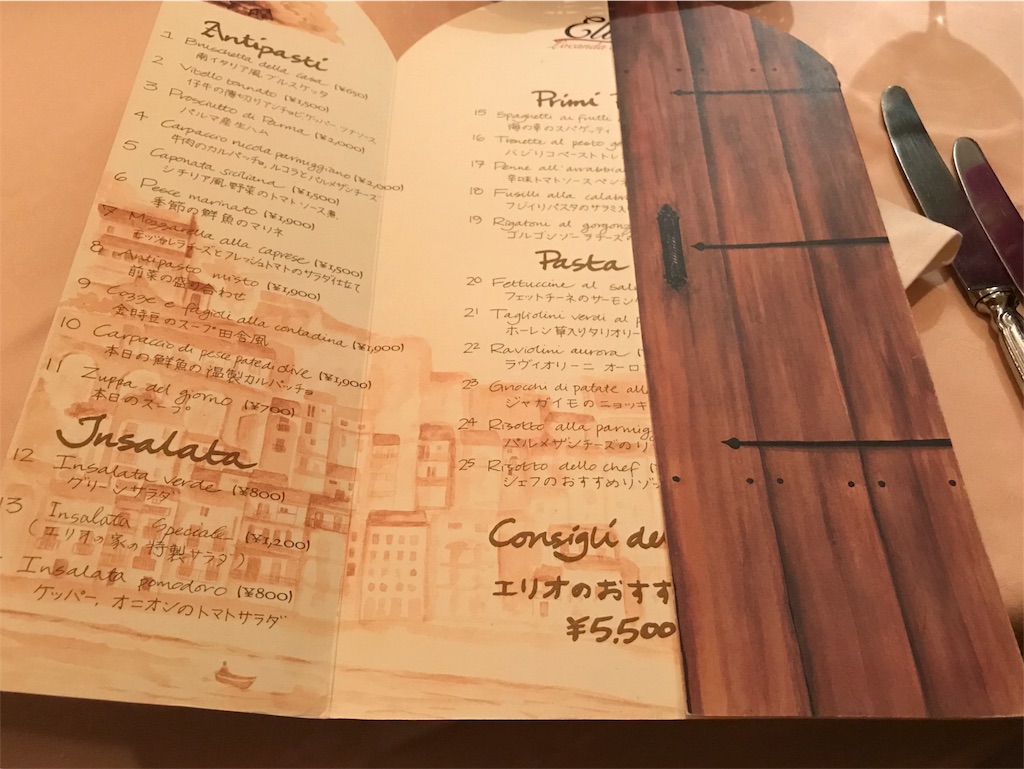 Antipasti
1 Bruschetta della casa (¥650)
南イタリア風ブルスケッタ
2 Vitello tonnato (¥1,500)
仔牛の薄切りアンチョビ、ケッパー、ツナソース
3 Prosciutto di Parma (¥2,000)
パルマ産生ハム
4 Carpaccio rucola parmiggiano (¥2,000)
牛肉のカルパッチョ、ルコラとパルメザンチーズ
5 Caponata siciliana (¥1,500)
シチリア風野菜のトマトソース煮
6 Pesce marinato (¥1,900)
季節の鮮魚のマリネ
7 Mozzarella alla caprese (¥1,500)
モッツァレラチーズとフレッシュトマトのサラダ仕立て
8 Antipasto misto (¥1,900)
前菜の盛り合わせ
9 Cozze e fagioli alla contadina (¥1,900)
金時豆のスープ田舎風
10 Carpaccio di pesce patè di olive (¥1,900)
本日の鮮魚の温製カルパッチョ
11 Zuppa del giorno (¥700)
本日のスープ
Insalata
12 Insalata verde (¥800)
グリーンサラダ
13 Insalata Speciale (¥1,200)
(エリオの家の特製サラダ)
Insalata pomodoro (¥800)
ケッパー、オニオンのトマトサラダ
El
Locanda
Primi
15 Spaghetti ai frutti
海の幸のスパゲッティ
16 Trenette al pesto
バジリコペーストトレ
17 Penne all'arrabbia
辛味トマトソースペン
18 Fusilli alla calab
フジイリパスタのサラミ
19 Rigatoni al gorgon
ゴルゴンゾーラチーズの
Pasta
20 Fettuccine al sal
フェットチーネのサーモン
21 Tagliolini verdi al
ホーレン草入りタリオリー
22 Raviolini aurora (
ラヴィオリーニ オーロ
23 Gnocchi di patate all
ジャガイモのニョッキ
24 Risotto alla parmig
パルメザンチーズのリ
25 Risotto dello chef (
シェフのおすすめリゾッ
Consigli de
エリオのおすす
¥5,500